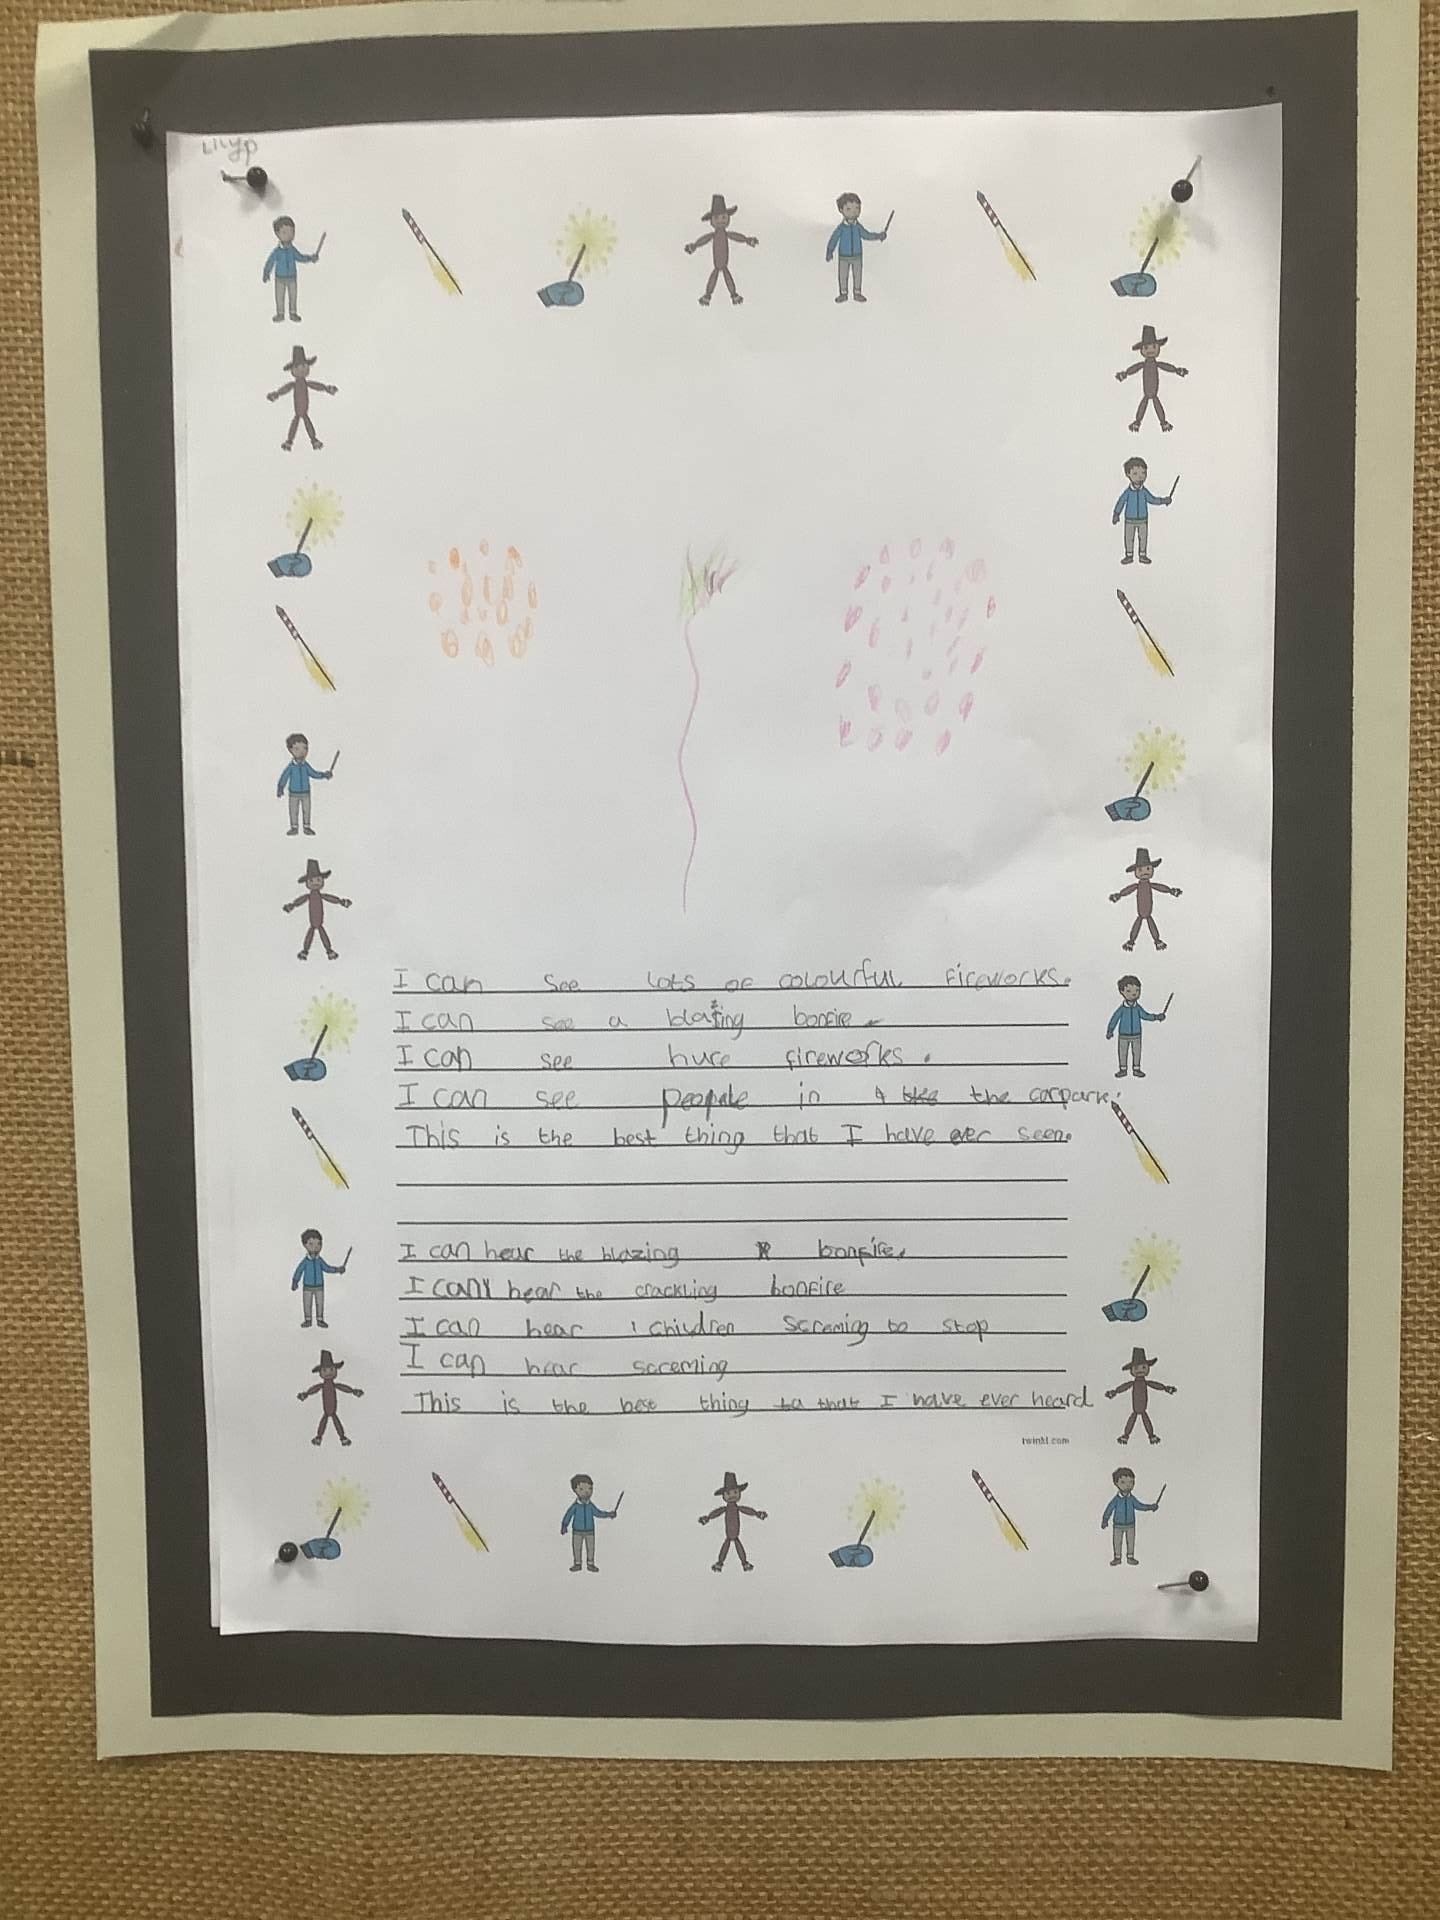 Lilyp
I can see lots of colourful fireworks.
I can see a blazing bonfire
I can see hure fireworks.
I can see peopale in the carpark.
This is the best thing that I have ever seen.
I can hear the blazing bonfire.
I can hear the crackling bonfire
I can hear children screming to stop
I can hear screming
This is the best thing ta that I have ever heard
twinkl.com